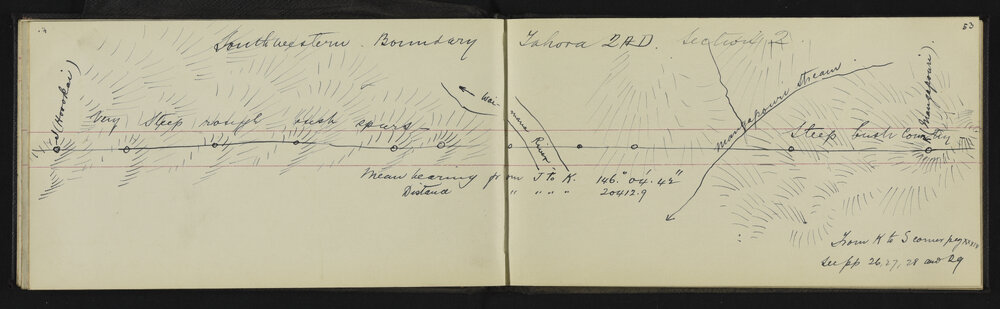 Southwestern Boundary Tahora 2AD. Section 2.
83
J (Hookai)
Very Steep rough bush spurs
Wai-
mana River
Mangapouri Stream
Steep bush Country
K Mangapouri)
Mean bearing from J to K. 146.° 04'. 42"
Distance " " " " 20412.9
From K to S corner peg
See pp 26, 27, 28 and 29